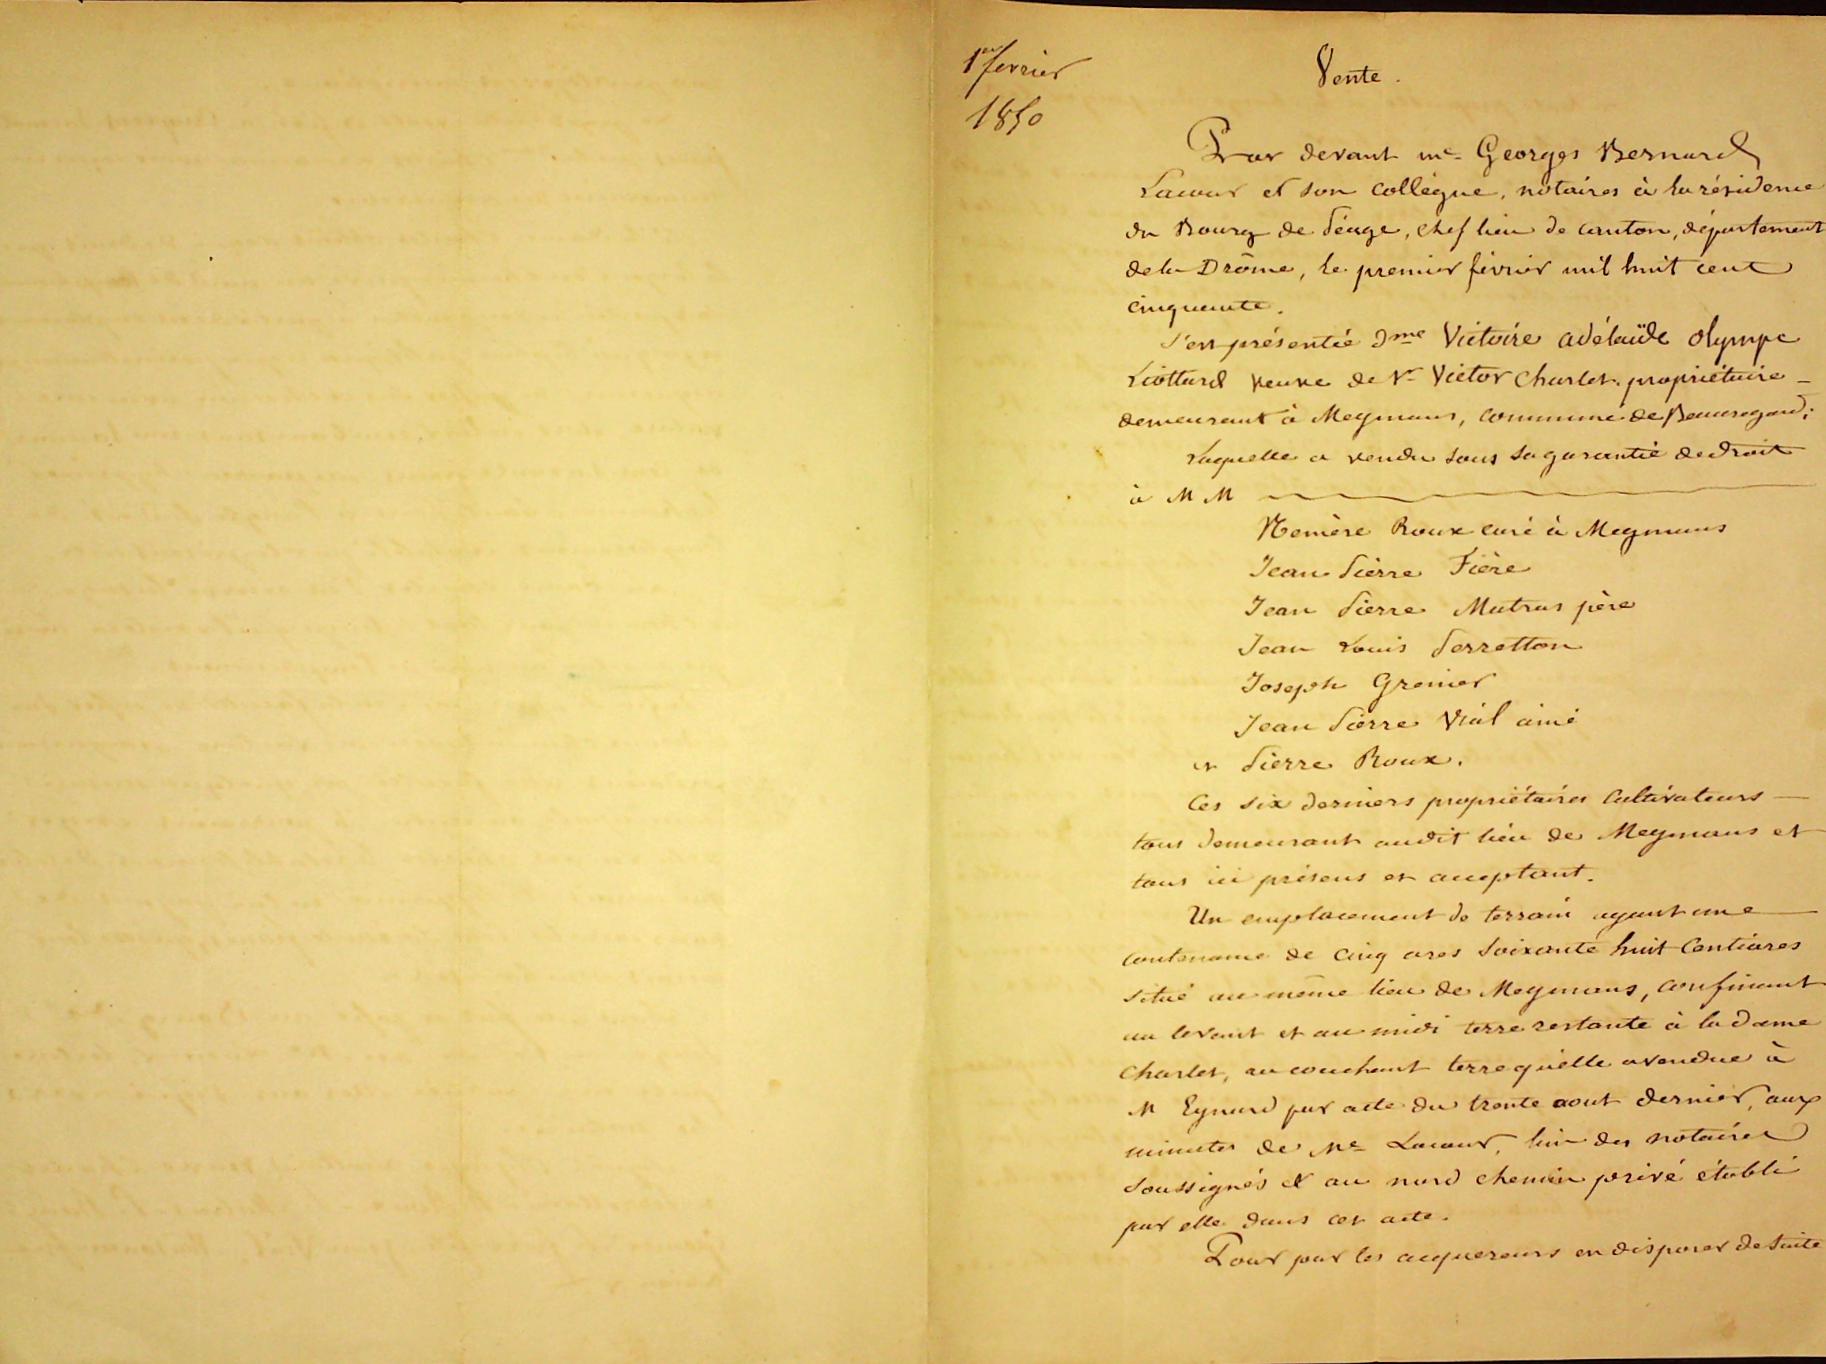 1er fevrier
1850
Vente.
Par devant me Georges Bernard
Lacour et son collègue, notaires à la résidence
du Bourg de Péage, chef lieu de canton, département
de la Drôme, le premier février mil huit cent
cinquante.
S'est présentée dme Victoire adélaïde olympe
Liottard veuve de Victor Charlet propriétaire
demeurant à Meymans, commune de Beauregard;
Laquelle a vendu sous sa garantie de droit
à MM
Roux curé à Meymans
Jean Pierre Fière
Jean Pierre Matras père
Jean Louis Perretton
Joseph Grenier
Jean Pierre Vial ainé
et Pierre Roux.
Ces six derniers propriétaires cultivateurs
tous demeurant audit lieu de Meymans et
tous ici présens et acceptant.
Un emplacement de terrain ayant une
contenance de cinq ares soixante huit centiares
situé au même lieu de Meymans, confinant
au levant et au midi terre restante à la dame
Charlet, au couchant terre qu'elle a vendue à
M Eynard par acte du trente aout dernier, aux
minutes de Me Lacour, l'un des notaires
soussignés et au nord chemin privé établi
par elle dans cet acte.
Pour par les acquereurs en disposer de suite